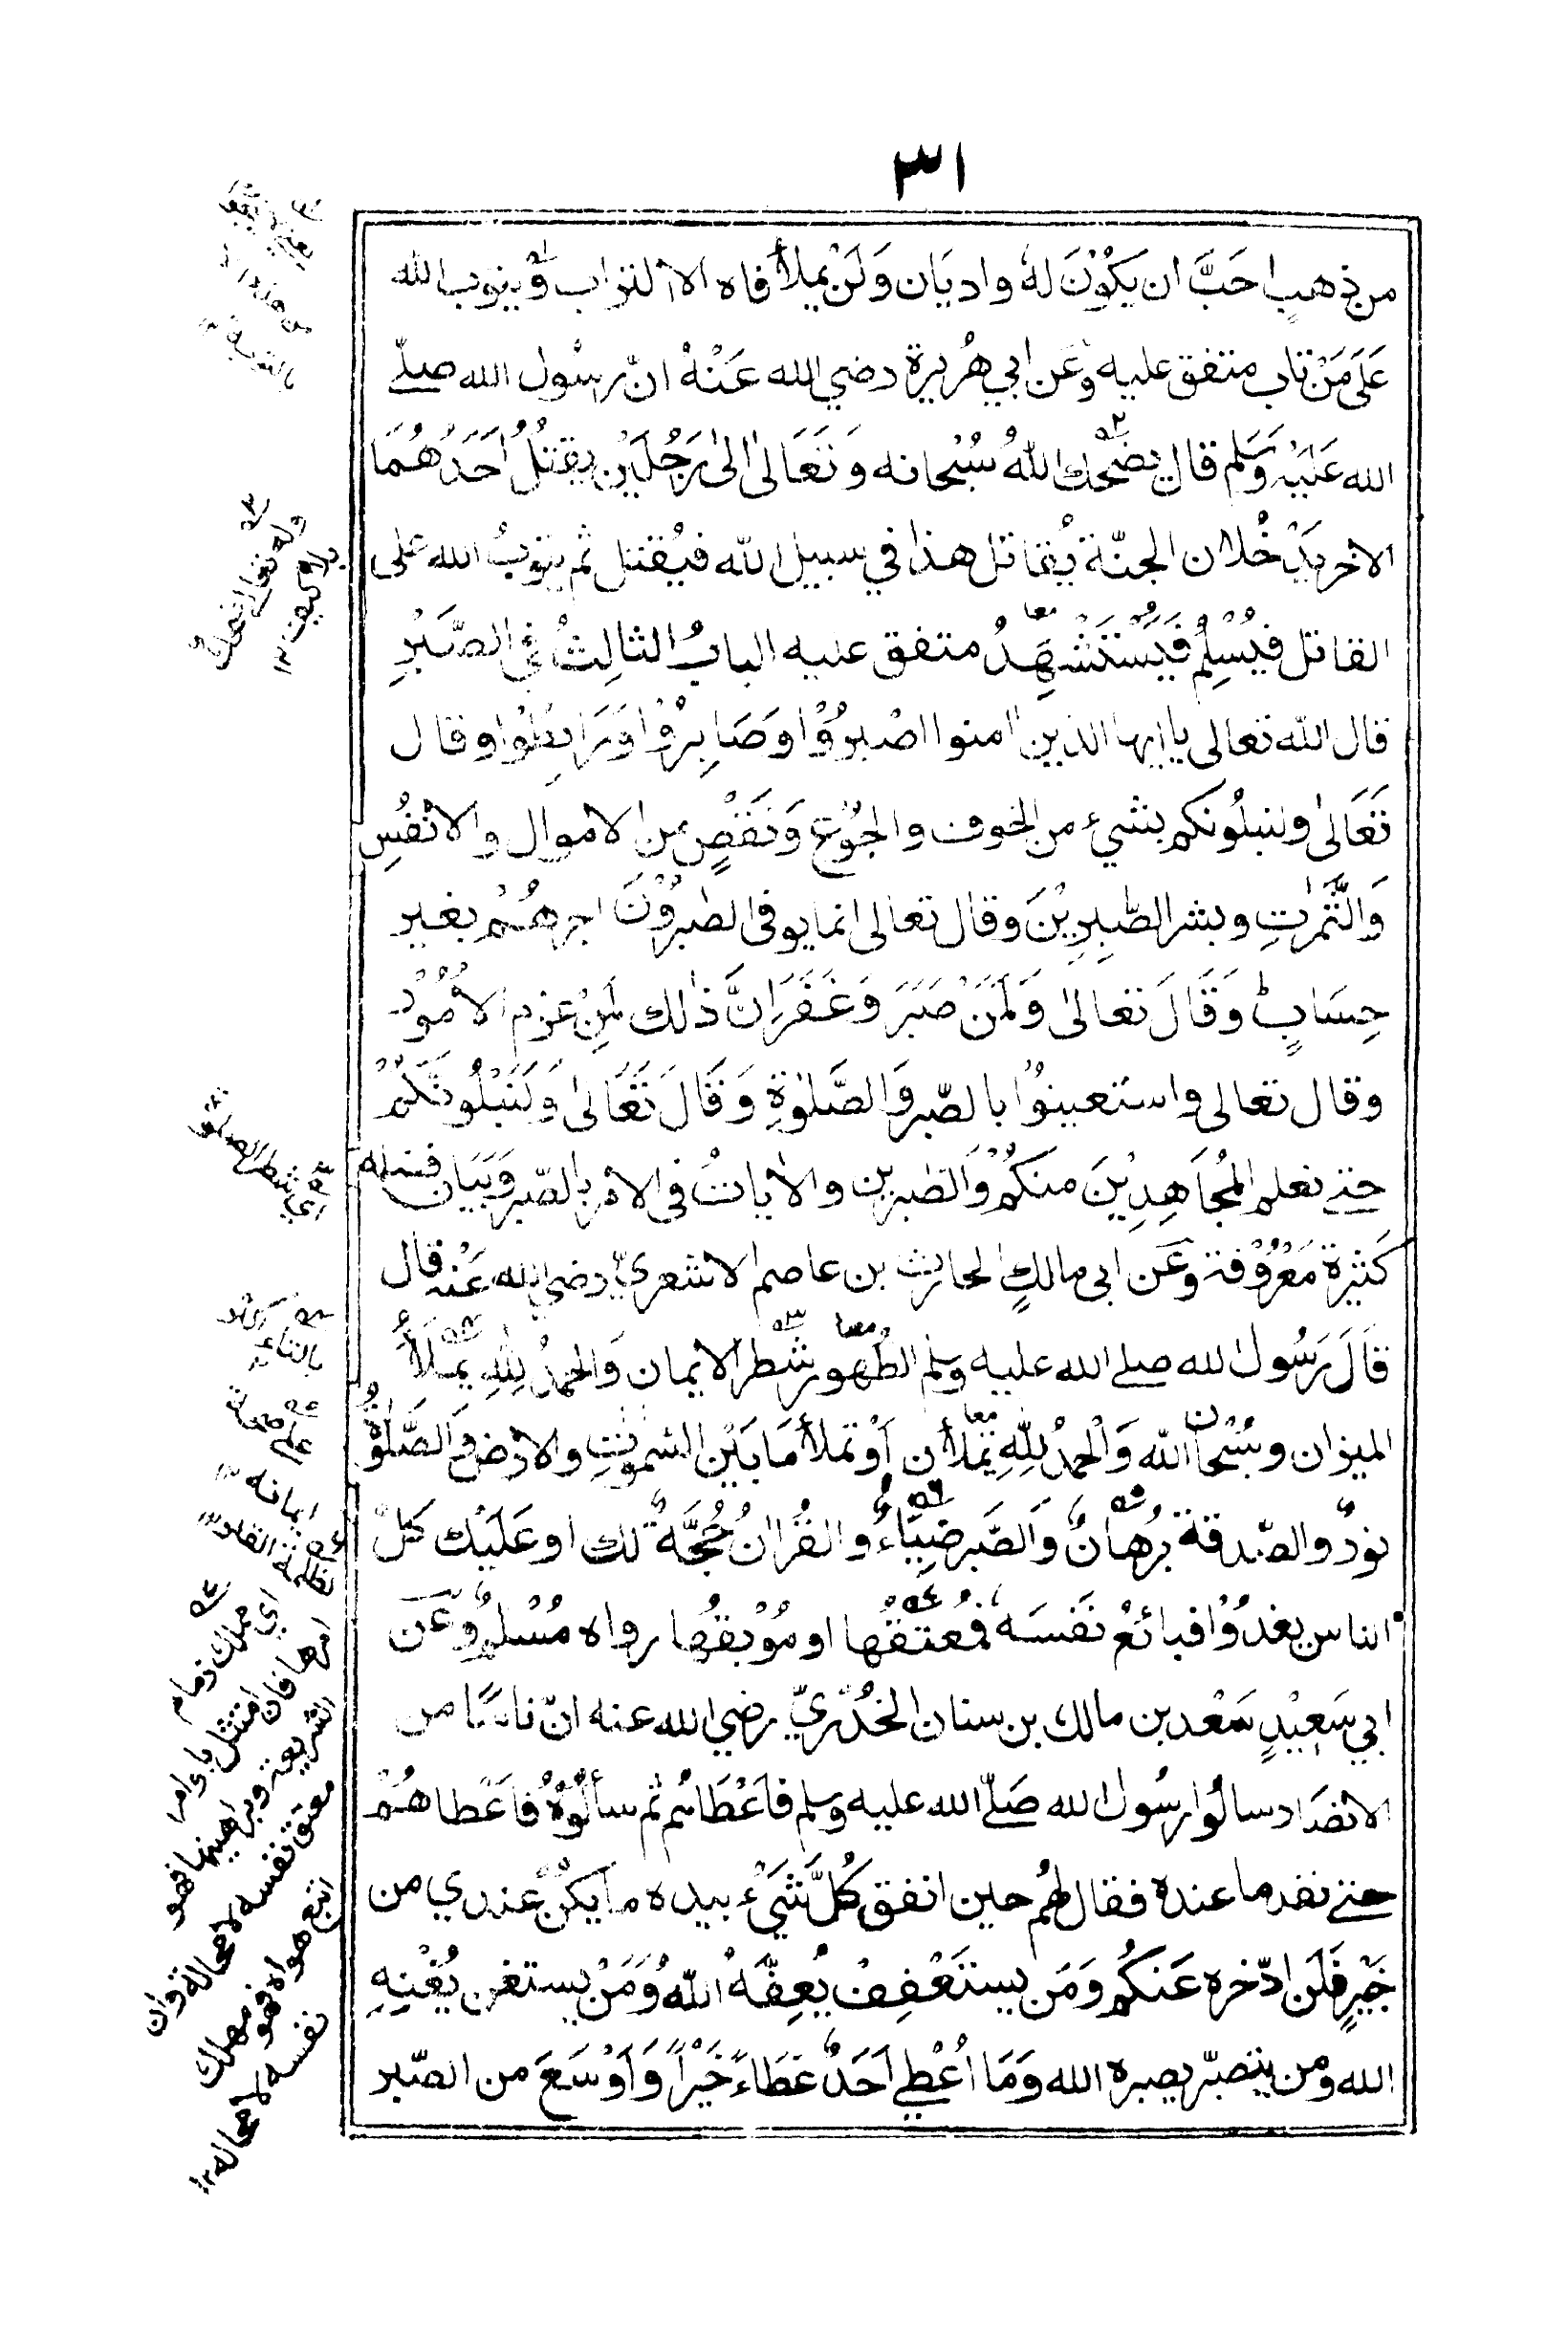 ٣١
من ذهب احَبَّ ان يَكُوْنَ لهٗ واديَان وَلَنْ يملأ فاه الا التراب وَيتوب الله
عَلَى مَنْ تاب متفق عليه وعَن ابي هُريرة رضي الله عَنْهُ انّ رسُول الله صلّے
الله عَلَيْهِ وَسَلم قال يضحك اللهُ سُبْحانه وَتَعَالىٰ الىٰ رَجُلَيْنِ يقتلُ اَحَدُهُمَا
الاخر يَدْخُلان الجنّة يُقاتل هذا في سبيل الله فيُقتل ثم يتوبُ الله على
القاتل فيُسْلِمُ فَيُسْتَشْهَدُ متفق عليه البابُ الثالِثُ فِي الصَّبْرِ
قال الله تعالى ياايها الذين اٰمنوا اصْبِرُوْا وَصَابِرُوْا وَرَابِطُوا وقال
تَعَالىٰ ولنبلُونكم بشيء من الخوف والجُوْع وَنَقْصٍ من الاموال والانْفُسِ
وَالثَّمَرٰتِ وبشر الصّٰبِرِيْنَ وقال تعالى انما يوفى الصٰبرُوْنَ اجرهُمْ بغير
حِسَابٍ وَقَالَ تعالىٰ وَلَمَنْ صَبَرَ وَغَفَرَ اِنَّ ذٰلك لَمِنْ عزم الاُمُوْر
وقال تعالى واستعينوُا بالصّبر وَالصَّلوٰةِ وَقَالَ تَعَالىٰ وَلَنَبْلُونَّكُمْ
حتے نعلم المُجَاهِدِيْنَ منكُمْ وَالصّٰبرين والاٰياتُ فى الامْر بالصّبر وَبَيَان فضله
كَثيرة مَعْرُوْفة وعَن ابى مالكٍ الحارث بن عاصم الاشعريّ رضي الله عَنْه قال
قَالَ رَسُول الله صلے الله عليه وسلم الطُّهور شطر الايمان وَالحمدُ لِلّٰهِ يَملَأُ
الميزان وسُبْحان الله وَالْحمدُ لِلّٰهِ تملأن اَوْ تملأ مَا بَيْن السَّمٰوٰتِ والارْض وَالصَّلوٰةُ
نورٌ والصّدقة بُرْهَانٌ وَالصَّبر ضِيَاءٌ والقُرْاٰنُ حُجَّةٌ لك او عَلَيْك كلّ
الناس يغدُوْا فبائعٌ نَفْسَهٗ فمُعتقُها او مُوْبقُها رواه مُسْلمٌ وعَن
ابي سَعِيْدٍ سَعْد بن مالك بن سنان الخُدْرِيّ رضي الله عنه انّ ناسًا من
الانصَار سالُوا رسُول الله صَلّے الله عليه وسلم فاَعْطَاهم ثم سألُوْهُ فاَعْطاهُمْ
حتے نفد ما عنده فقال لهُم حين انفق كُلَّ شَيْءٍ بيده ما يكُنْ عندي من
خَيْرٍ فَلَن ادّخره عَنكُم وَمَن يستَعْفِفْ يُعِفَّهُ اللهُ وَمَنْ يستغن يُغْنِهِ
الله ومن يتصبّر يصبره الله وَمَا اُعْطِي اَحَدٌ عَطَاءً خَيْراً وَاَوْسَعَ من الصّبر
وله تعالى ضحك
بلا كيف ١٢
اي شطر الصلوة
بالتاء
ايمانه
اي مملك زمام
امرها فان امتثل باوامر
الشريعة وبراهينها فهو
معتق نفسه لا محالة وان
اتبع هواه فهو مهلك
نفسه لا محاله ١٢